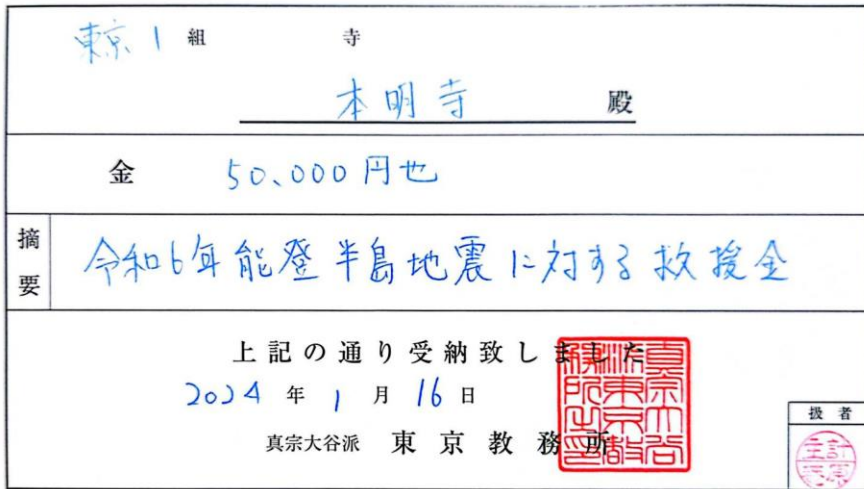 東京1組 寺
本明寺 殿
金 50,000円也
摘要 令和6年能登半島地震に対する救援金
上記の通り受納致しました
2024年1月16日
真宗大谷派 東京教務所
真宗大谷派東京教務所之印
扱者